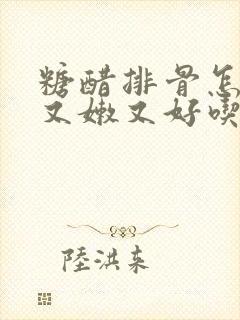 糖醋排骨怎
又嫩又好喫
陸洪来